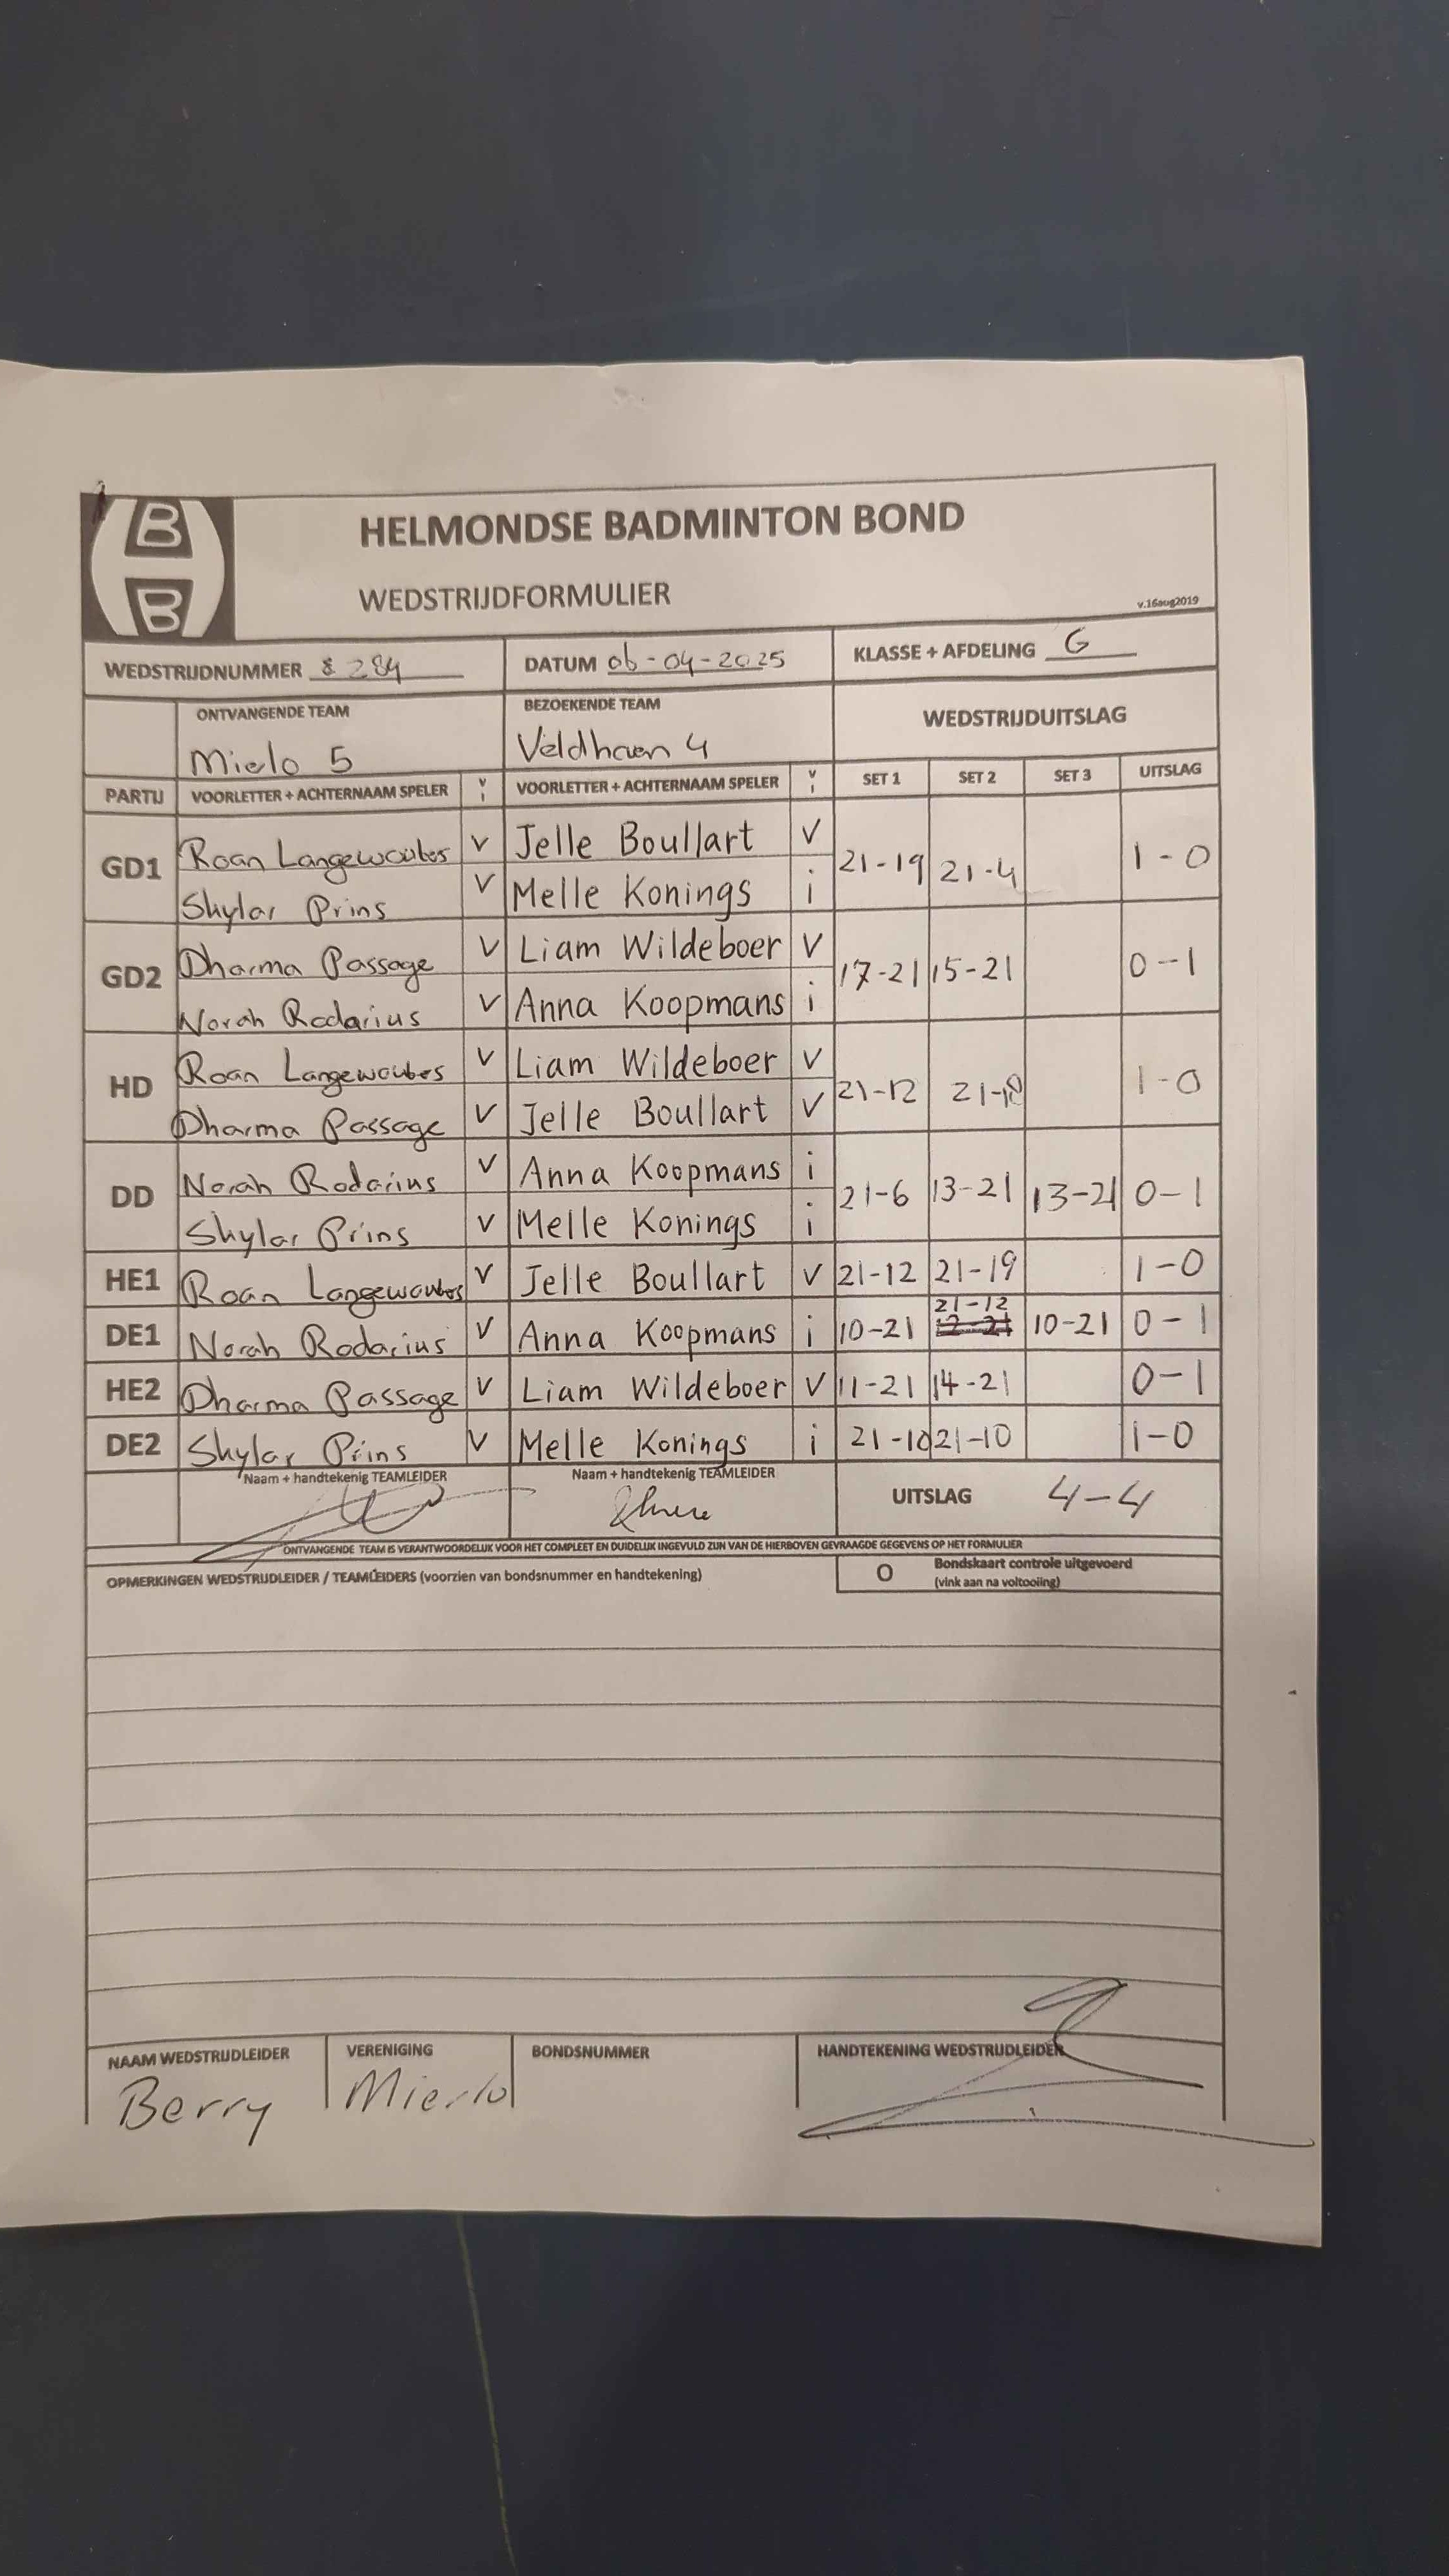 B
B
HELMONDSE BADMINTON BOND
WEDSTRIJDFORMULIER
v.16aug2019
WEDSTRIJDNUMMER 8284
DATUM 06-04-2025
KLASSE + AFDELING G
ONTVANGENDE TEAM
BEZOEKENDE TEAM
WEDSTRIJDUITSLAG
Mierlo 5
Veldhoven 4
PARTIJ VOORLETTER + ACHTERNAAM SPELER V I VOORLETTER + ACHTERNAAM SPELER V I SET 1 SET 2 SET 3 UITSLAG
GD1 Roan Langewouters V Jelle Boullart V 21-19 21-4 1-0
Skylar Prins V Melle Konings i
GD2 Dharma Passage V Liam Wildeboer V 17-21 15-21 0-1
Norah Rodarius V Anna Koopmans i
HD Roan Langewouters V Liam Wildeboer V 21-12 21-18 1-0
Dharma Passage V Jelle Boullart V
DD Norah Rodarius V Anna Koopmans i 21-6 13-21 13-21 0-1
Skylar Prins V Melle Konings i
HE1 Roan Langewouters V Jelle Boullart V 21-12 21-19 1-0
DE1 Norah Rodarius V Anna Koopmans i 10-21 21-12 10-21 0-1
HE2 Dharma Passage V Liam Wildeboer V 11-21 14-21 0-1
DE2 Skylar Prins V Melle Konings i 21-10 21-10 1-0
Naam + handtekenig TEAMLEIDER
Naam + handtekenig TEAMLEIDER
UITSLAG 4-4
ONTVANGENDE TEAM IS VERANTWOORDELIJK VOOR HET COMPLEET EN DUIDELIJK INGEVULD ZIJN VAN DE HIERBOVEN GEVRAAGDE GEGEVENS OP HET FORMULIER
OPMERKINGEN WEDSTRIJDLEIDER / TEAMLEIDERS (voorzien van bondsnummer en handtekening)
O Bondskaart controle uitgevoerd
(vink aan na voltooiing)
NAAM WEDSTRIJDLEIDER
VERENIGING
BONDSNUMMER
HANDTEKENING WEDSTRIJDLEIDER
Berry
Mierlo